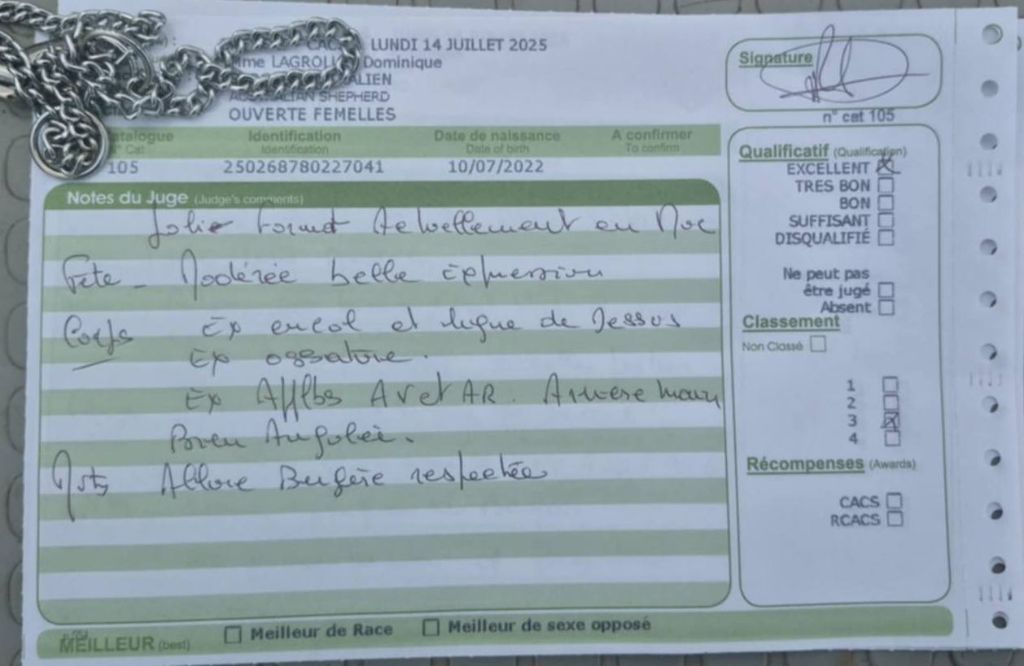 CACS LUNDI 14 JUILLET 2025
Mme Dominique
SHEPHERD
OUVERTE FEMELLES
Signature
n° cat 105
Catalogue Identification Date de naissance A confirmer
N° Cat Identification Date of birth To confirm
105 250268780227041 10/07/2022
Notes du Juge (Judge's comments)
Jolie Format Actuellement en Mue
Tête - Modérée belle Expression
Corps Ex encol et ligne de Dessus
Ex ossature.
Ex Aplbs AV et AR. Arrière main
Bien Angulée.
Mvts Allure Bergère respectée
Qualificatif (Qualification)
EXCELLENT
TRES BON
BON
SUFFISANT
DISQUALIFIÉ
Ne peut pas
être jugé
Absent
Classement
Non Classé
1
2
3
4
Récompenses (Awards)
CACS
RCACS
MEILLEUR (best) Meilleur de Race Meilleur de sexe opposé